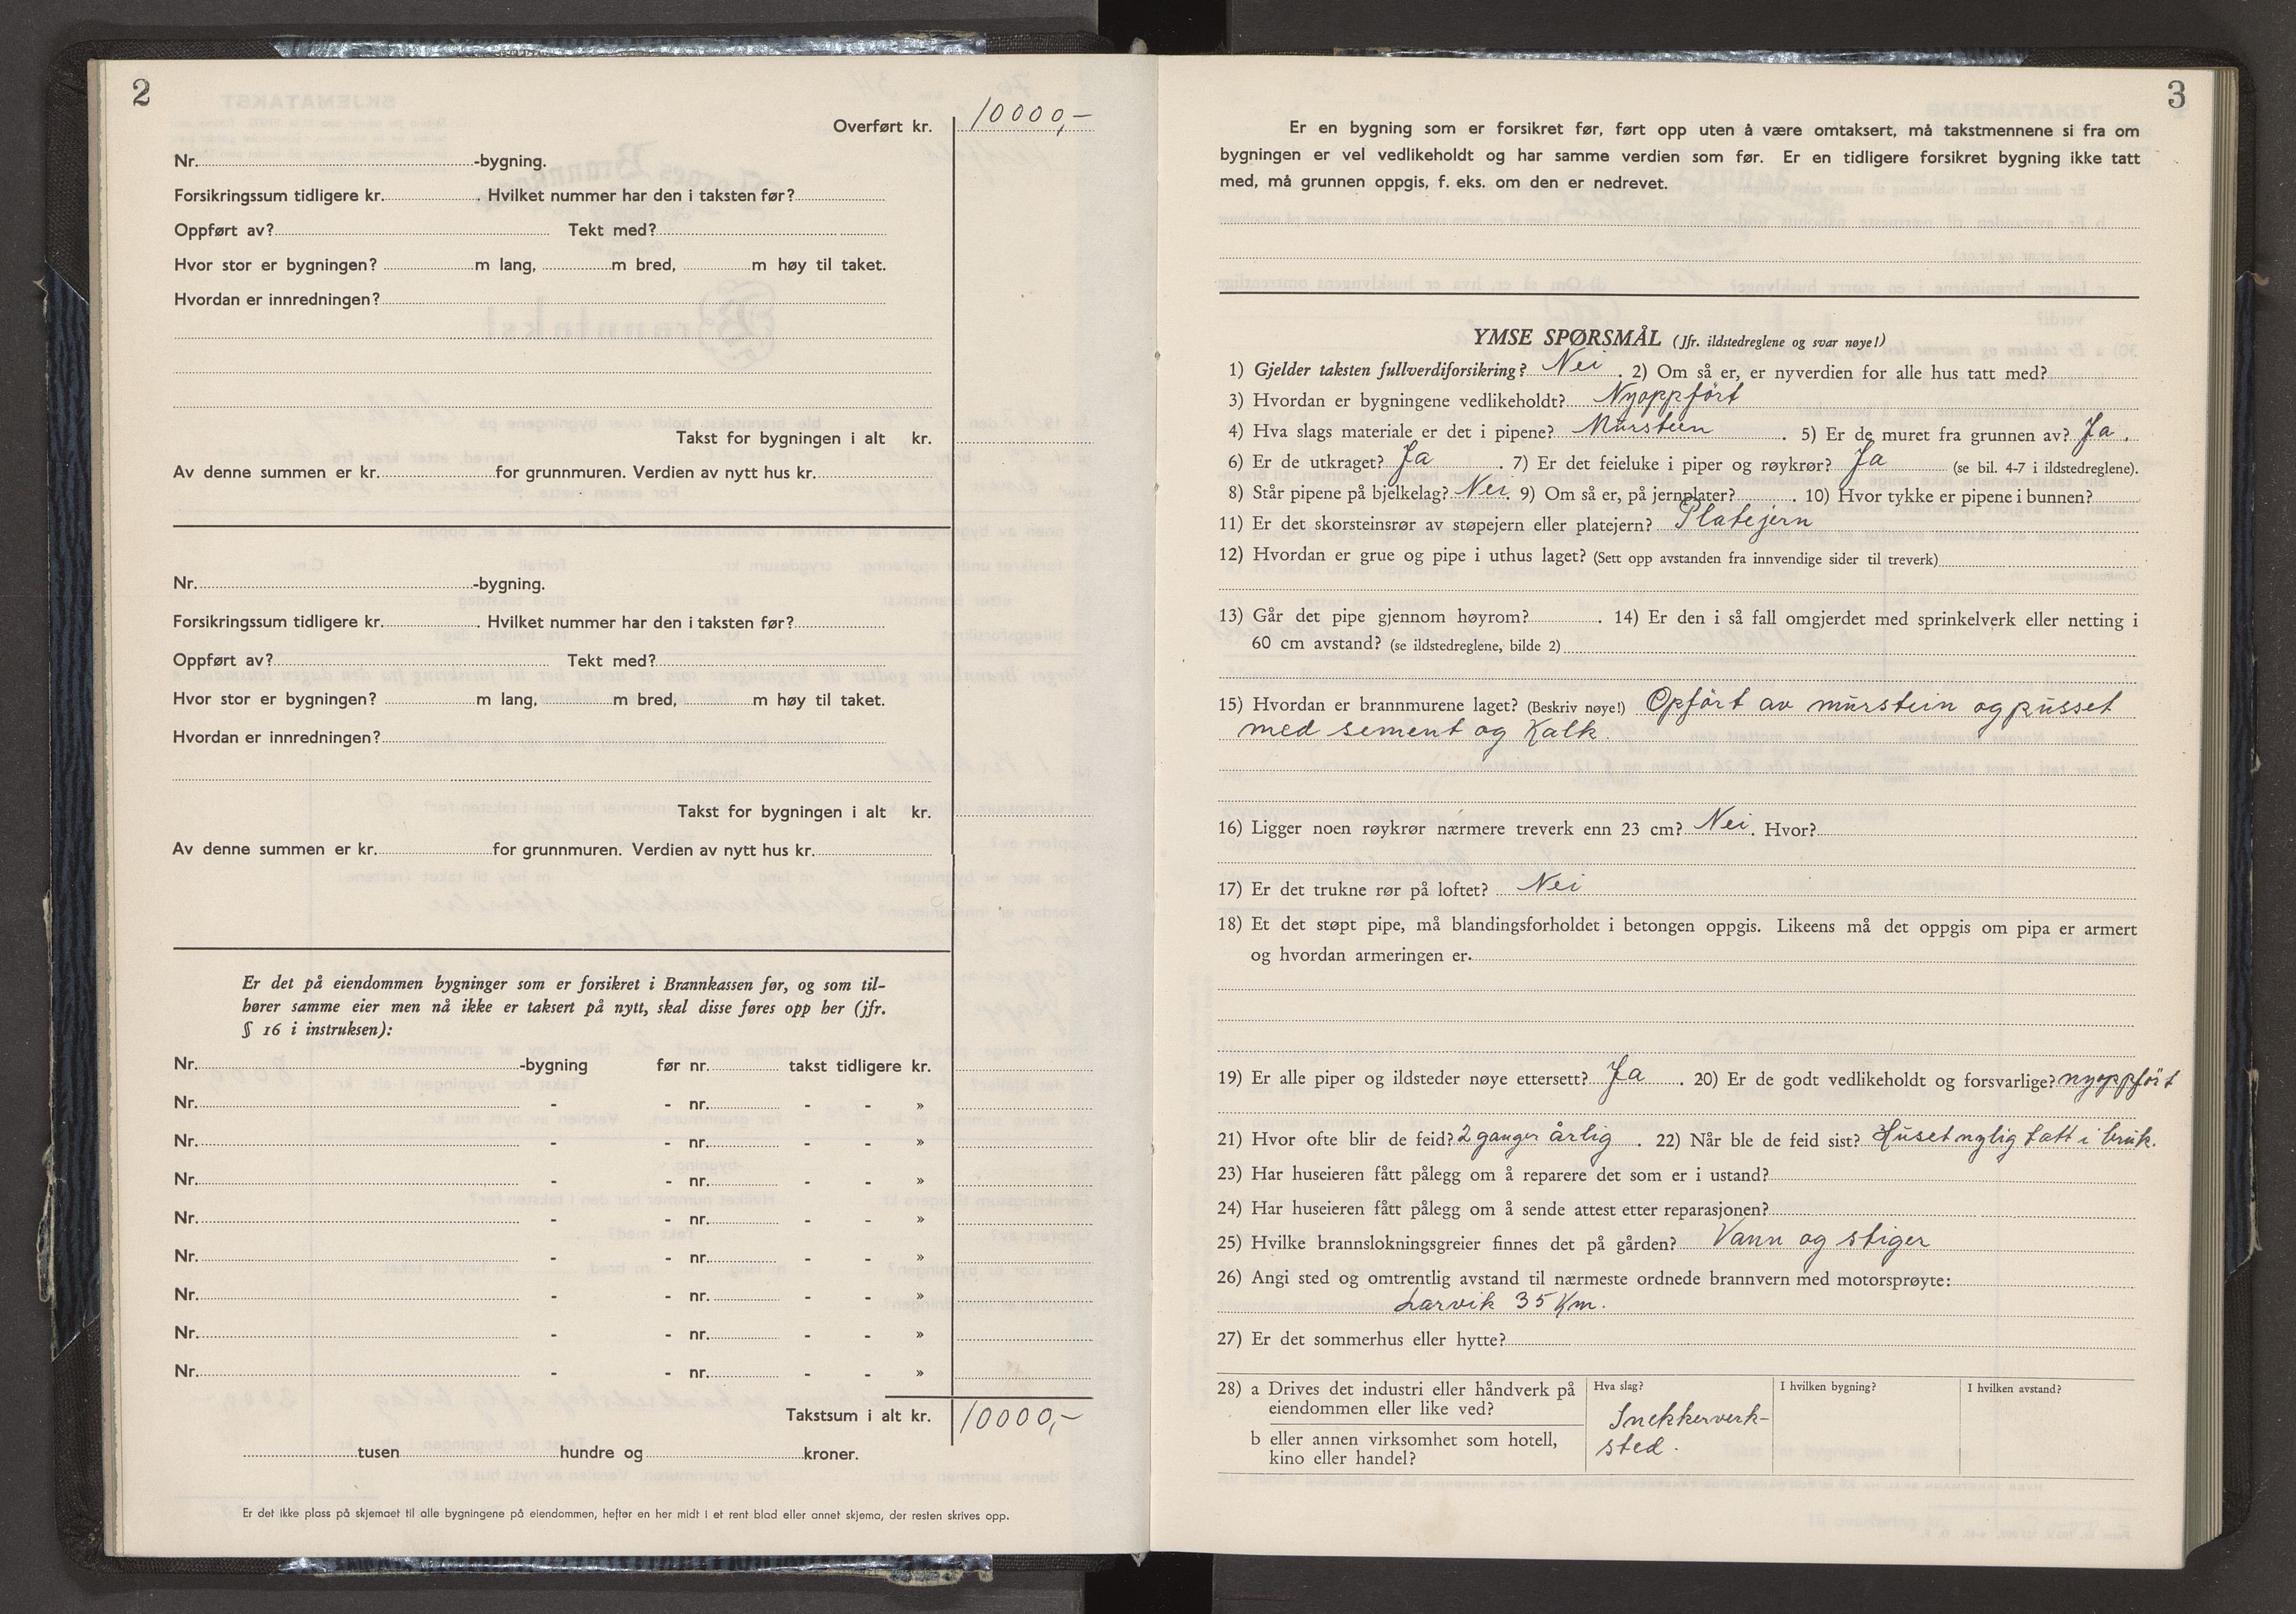 2
Overført kr. 10000,-
Nr. -bygning.
Forsikringssum tidligere kr. . Hvilket nummer har den i taksten før?
Oppført av? Tekt med?
Hvor stor er bygningen? m lang, m bred, m høy til taket.
Hvordan er innredningen?
Takst for bygningen i alt kr.
Av denne summen er kr. for grunnmuren. Verdien av nytt hus kr.
Nr. -bygning.
Forsikringssum tidligere kr. . Hvilket nummer har den i taksten før?
Oppført av? Tekt med?
Hvor stor er bygningen? m lang, m bred, m høy til taket.
Hvordan er innredningen?
Takst for bygningen i alt kr.
Av denne summen er kr. for grunnmuren. Verdien av nytt hus kr.
Er det på eiendommen bygninger som er forsikret i Brannkassen før, og som til-
hører samme eier men nå ikke er taksert på nytt, skal disse føres opp her (jfr.
§ 16 i instruksen):
Nr. -bygning før nr. takst tidligere kr.
Nr. - - nr. - - »
Nr. - - nr. - - »
Nr. - - nr. - - »
Nr. - - nr. - - »
Nr. - - nr. - - »
Nr. - - nr. - - »
Nr. - - nr. - - »
Nr. - - nr. - - »
Takstsum i alt kr. 10000,-
tusen hundre og kroner.
Er det ikke plass på skjemaet til alle bygningene på eiendommen, hefter en her midt i et rent blad eller annet skjema, der resten skrives opp.
3
Er en bygning som er forsikret før, ført opp uten å være omtaksert, må takstmennene si fra om
bygningen er vel vedlikeholdt og har samme verdien som før. Er en tidligere forsikret bygning ikke tatt
med, må grunnen oppgis, f. eks. om den er nedrevet.
YMSE SPØRSMÅL (Jfr. ildstedreglene og svar nøye!)
1) Gjelder taksten fullverdiforsikring? Nei . 2) Om så er, er nyverdien for alle hus tatt med?
3) Hvordan er bygningene vedlikeholdt? Nyoppført
4) Hva slags materiale er det i pipene? Murstein . 5) Er de muret fra grunnen av? Ja .
6) Er de utkraget? Ja . 7) Er det feieluke i piper og røykrør? Ja (se bil. 4-7 i ildstedreglene).
8) Står pipene på bjelkelag? Nei. 9) Om så er, på jernplater? . 10) Hvor tykke er pipene i bunnen?
11) Er det skorsteinsrør av støpejern eller platejern? Platejern
12) Hvordan er grue og pipe i uthus laget? (Sett opp avstanden fra innvendige sider til treverk)
13) Går det pipe gjennom høyrom? . 14) Er den i så fall omgjerdet med sprinkelverk eller netting i
60 cm avstand? (se ildstedreglene, bilde 2)
15) Hvordan er brannmurene laget? (Beskriv nøye!) Opført av murstein og pusset
med sement og Kalk.
16) Ligger noen røykrør nærmere treverk enn 23 cm? Nei. Hvor?
17) Er det trukne rør på loftet? Nei
18) Et det støpt pipe, må blandingsforholdet i betongen oppgis. Likeens må det oppgis om pipa er armert
og hvordan armeringen er.
19) Er alle piper og ildsteder nøye ettersett? Ja . 20) Er de godt vedlikeholdt og forsvarlige? nyoppført
21) Hvor ofte blir de feid? 2 ganger årlig . 22) Når ble de feid sist? Huset nylig tatt i bruk.
23) Har huseieren fått pålegg om å reparere det som er i ustand?
24) Har huseieren fått pålegg om å sende attest etter reparasjonen?
25) Hvilke brannslokningsgreier finnes det på gården? Vann og stiger
26) Angi sted og omtrentlig avstand til nærmeste ordnede brannvern med motorsprøyte:
Larvik 35 Km.
27) Er det sommerhus eller hytte?
28) a Drives det industri eller håndverk på
eiendommen eller like ved?
b eller annen virksomhet som hotell,
kino eller handel?
Hva slag?
Snekkerverk-
sted.
I hvilken bygning?
I hvilken avstand?